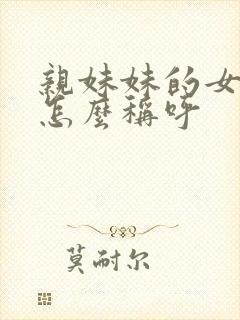 親妹妹的女
怎麼稱呼
莫耐尔